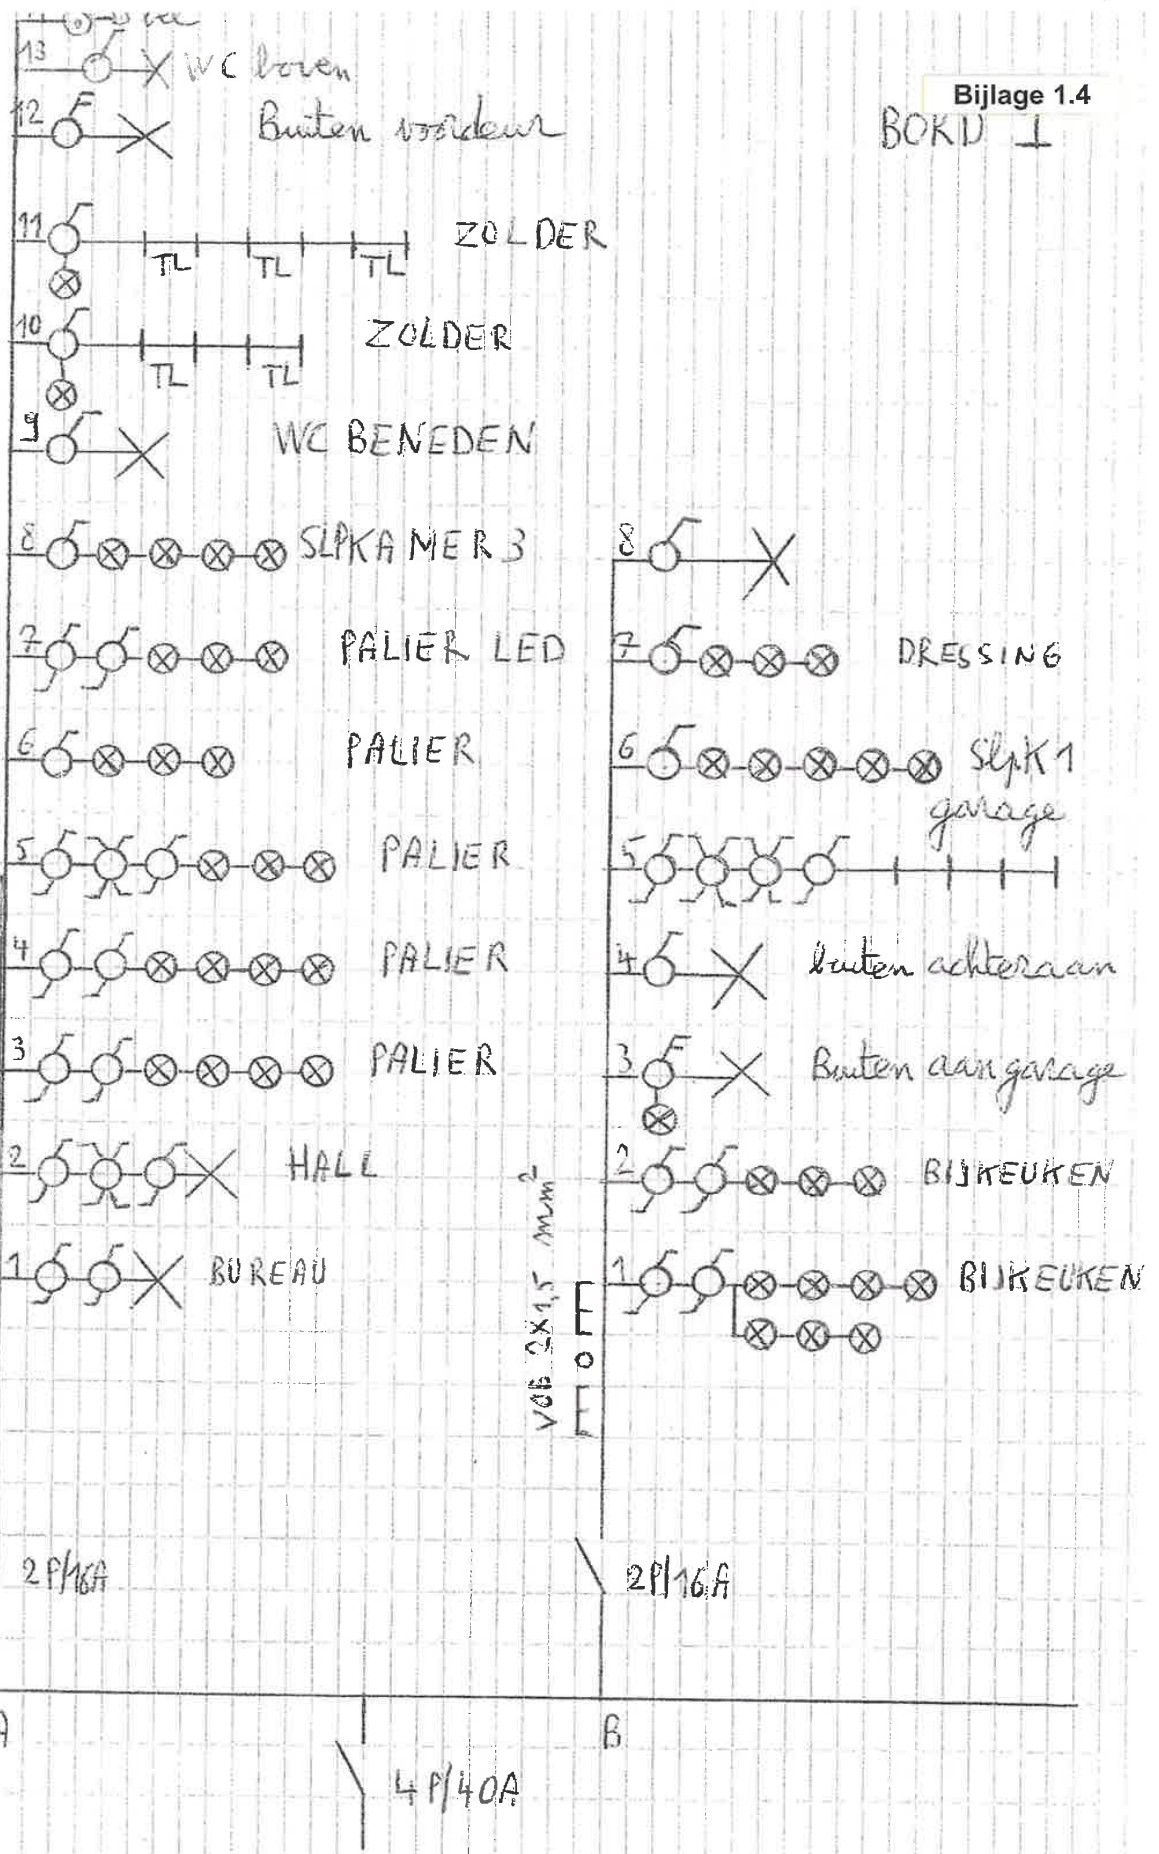 13 WC boven
Bijlage 1.4
BORD 1
12 Buiten voordeur
11 ZOLDER
TL TL TL
10 ZOLDER
TL TL
9 WC BENEDEN
8 SLPKAMER 3
7 PALIER LED
6 PALIER
5 PALIER
4 PALIER
3 PALIER
2 HALL
1 BUREAU
2P/16A
A
8
7 DRESSING
6 SlpK 1
garage
5
4 buiten achteraan
3 Buiten aan garage
2 BIJKEUKEN
1 BIJKEUKEN
VOB 2X1,5 mm²
2P/16A
B
4P/40A